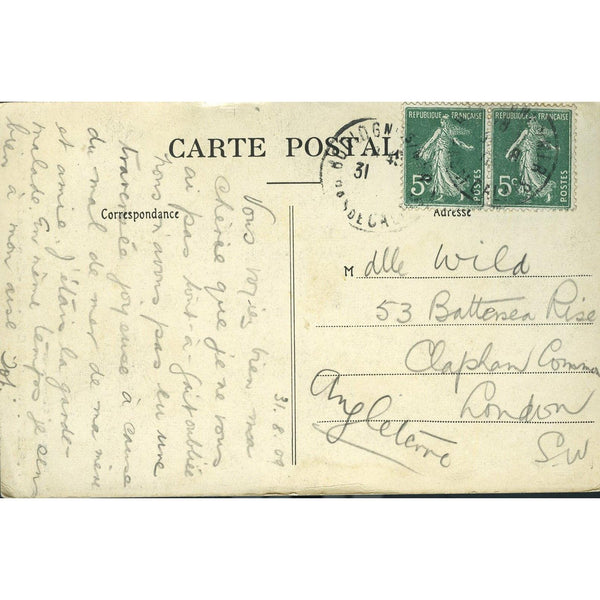 CARTE POSTALE
Correspondance
Adresse
RÉPUBLIQUE FRANÇAISE
5c
POSTES
RÉPUBLIQUE FRANÇAISE
5c
POSTES
BOULOGNE
31
PAS DE CALAIS
31.8.09
Vous voyez bien ma
chérie que je ne vous
ai pas tout-à-fait oubliée
nous n'avons pas eu une
traversée joyeuse à cause
du mal de mer de ma mère
et amie. J'étais la garde-
malade en même temps je
bien à mon aise
Mdlle Wild
53 Battersea Rise
Clapham Common
London
S.W
Angleterre